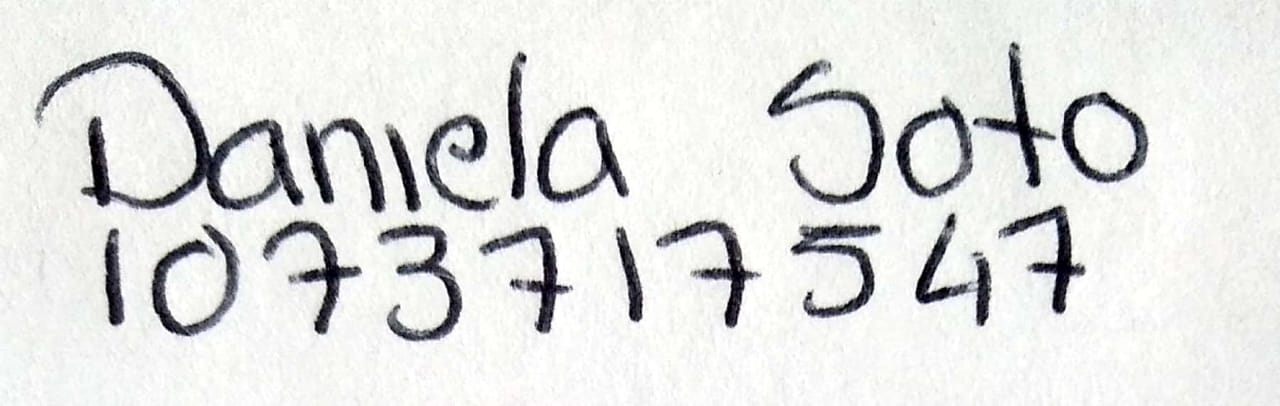 Daniela Soto
1073717547